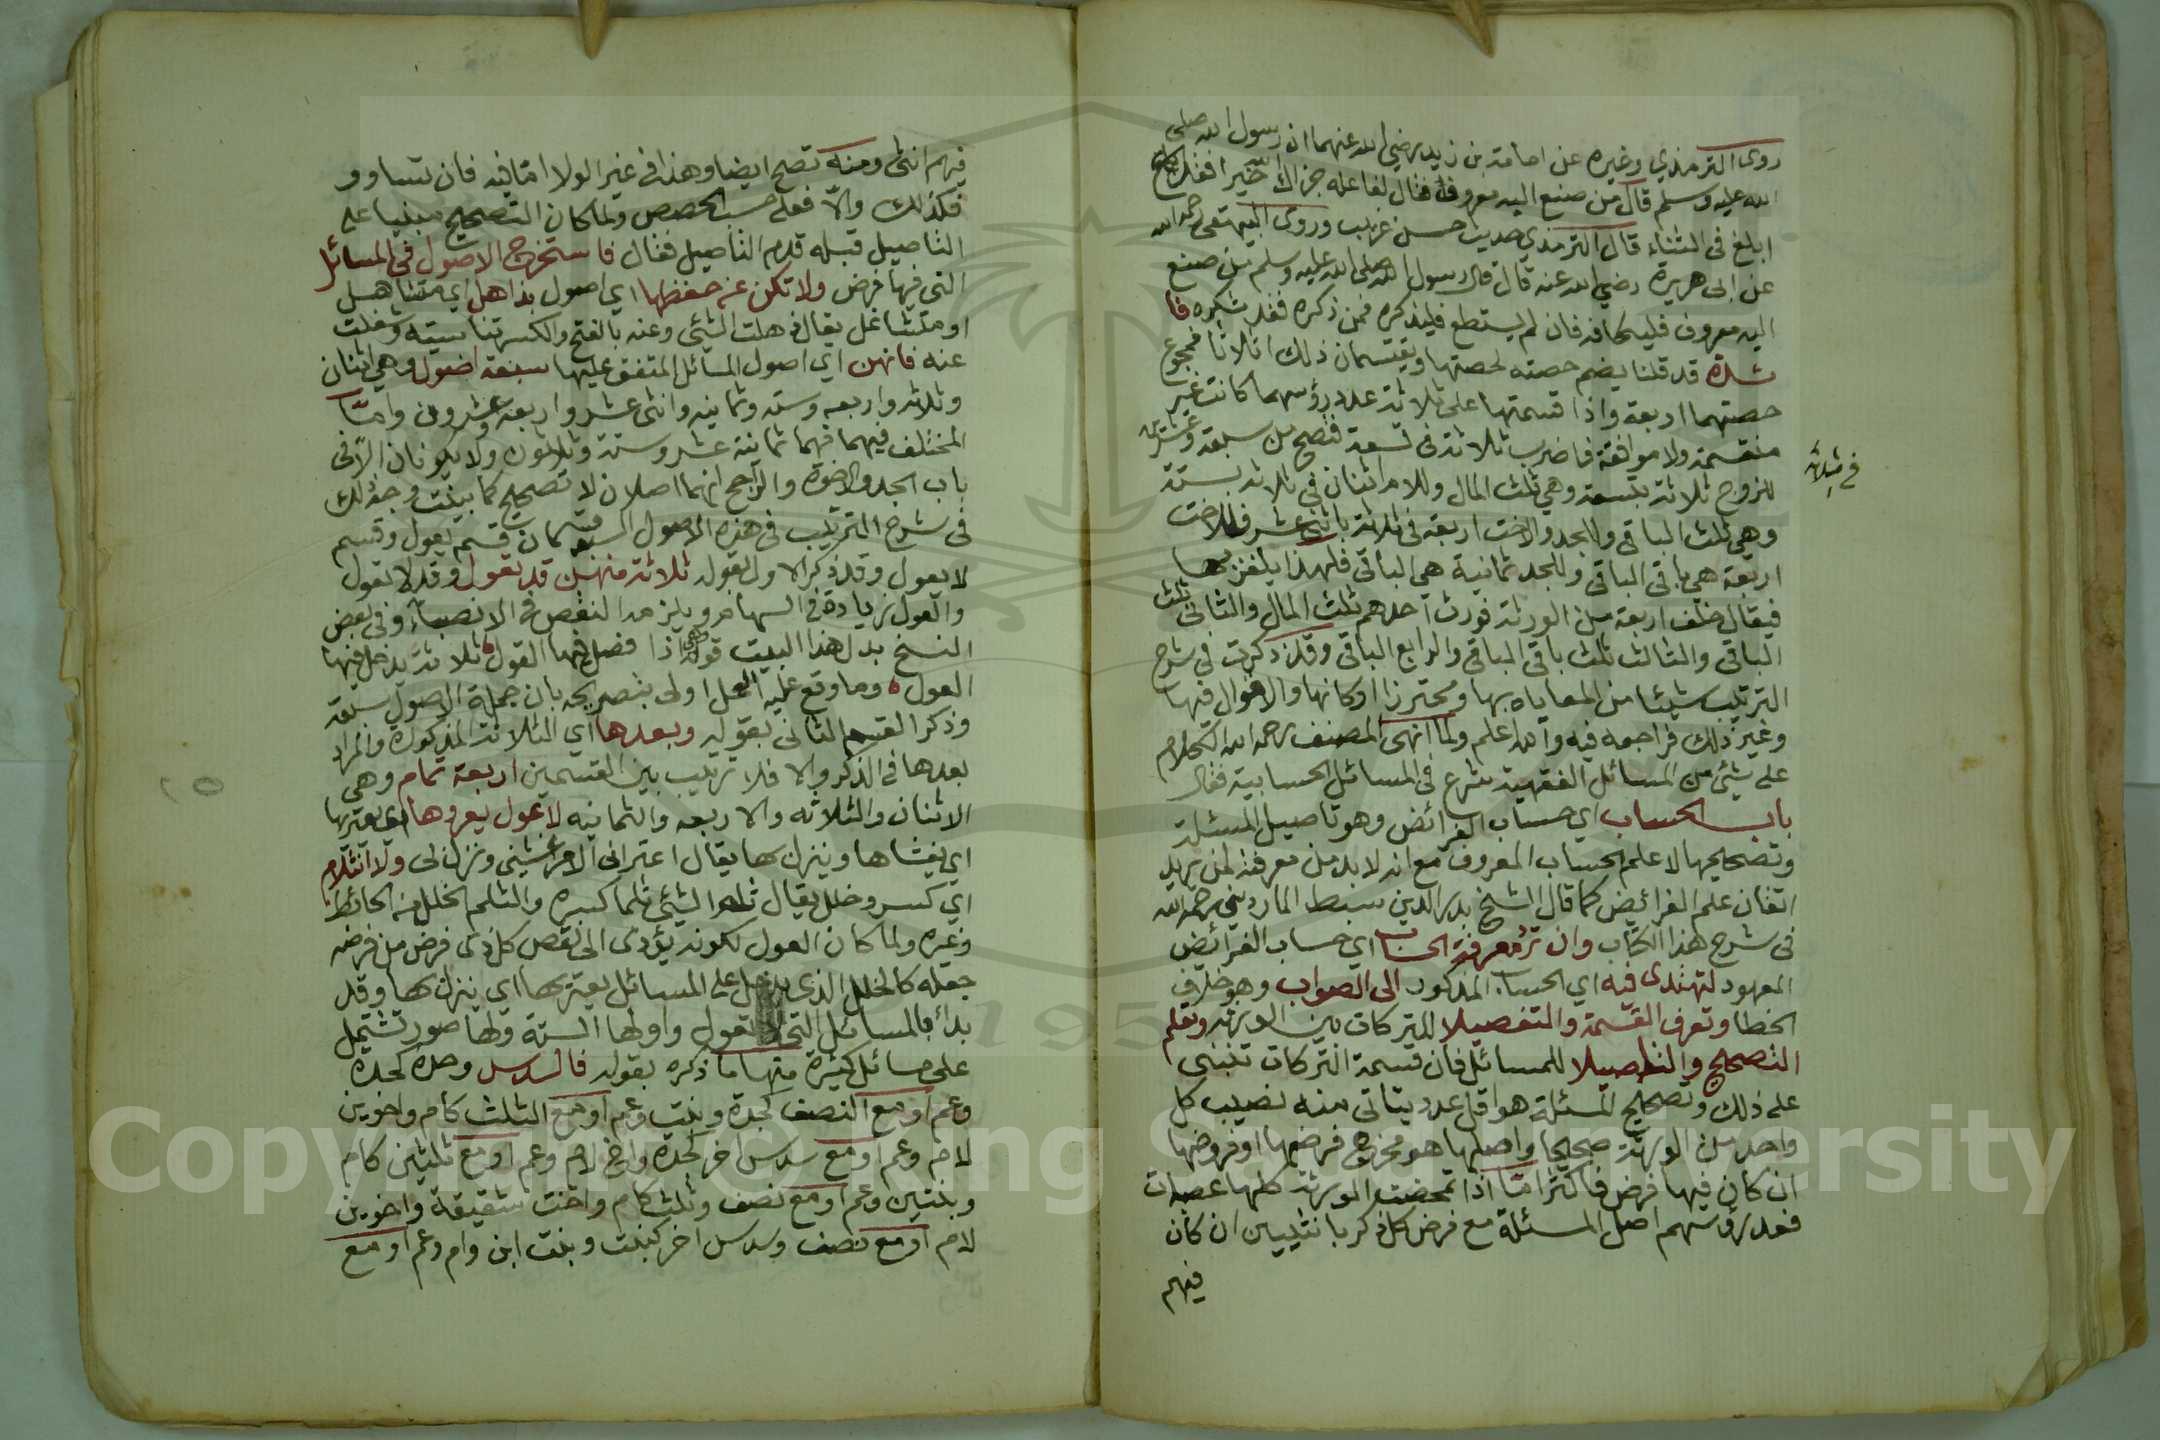 روى الترمذي وغيره عن اسامة بن زيد رضي الله عنهما ان رسول الله صلى
الله عليه وسلم قال من صنع اليه معروفا فقال لفاعله جزاك الله خيرا فقد
ابلغ في الثناء قال الترمذي حديث حسن غريب وروى البيهقي رحمه الله
عن ابى هريرة رضي الله عنه قال قال رسول الله صلى الله عليه وسلم من صنع
اليه معروف فليكافه فان لم يستطع فليذكره فمن ذكره فقد شكره فا
ئدة قد قلنا يضم حصته لحصتها ويقتسمان ذلك اثلاثا فمجموع
حصتهما اربعة واذا قسمتها على ثلاثة عدد رؤسهما كانت غير
منقسمة ولا موافقة فاضرب ثلاثة في تسعة فتصح من سبعة وعشرين
في ثلاثة
للزوج ثلاثة بتسعة وهي ثلث المال وللام اثنان في ثلاثة بستة
وهي ثلث الباقي وللجد والاخت اربعة في ثلاثة باثني عشر فللاخت
اربعة هي باقي الباقي وللجد ثمانية هي الباقي فلهذا يلغز بها
فيقال خلف اربعة من الورثة فورث احدهم ثلث المال والثاني ثلث
الباقي والثالث ثلث باقي الباقي والرابع الباقي وقد ذكرت في شرح
الترتيب شيئا من المعاياه بها ومحترزا اركانها والاقوال فيها
وغير ذلك فراجعه فيه والله اعلم ولما انهى المصنف رحمه الله الكلام
على شيئ من المسائل الفقهية شرع في المسائل الحسابية فقال
باب الحساب اي حساب الفرائض وهو تاصيل المسئلة
وتصحيحها لا علم الحساب المعروف مع انه لا بد من معرفته لمن يريد
اتقان علم الفرائض كما قال الشيخ بدر الدين سبط المارديني رحمه الله
في شرح هذا الكتاب وان ترد معرفة الحساب اي حساب الفرائض
المعهود لتهتدى فيه اي الحساب المذكور الى الصواب وهو خلاف
الخطا وتعرف القسمة والتفصيلا للتركات بين الورثة وتعلم
التصحيح والتاصيلا للمسائل فان قسمة التركات تنبنى
على ذلك وتصحيح المسئلة هو اقل عدد يتاتى منه نصيب كل
واحد من الورثة صحيحا واصلها هو مخرج فرضها او فروضها
ان كان فيها فرض فاكثر امّا اذا تمحضت الورثة كلها عصبات
فعدد رؤسهم اصل المسئلة مع فرض كل ذكر بانثيين ان كان
فيهم
فيهم انثى ومنه تصح ايضا وهذا في غير الولا امّا فيه فان تساوو
فكذلك والّا فعلى حسب الحصص ولما كان التصحيح مبنيا على
التاصيل قبله قدم التاصيل فقال فاستخرج الاصول في المسائل
التي فيها فرض ولا تكن عن حفظها اي اصول بذاهل اي متشاهل
او متشاغل يقال ذهلت الشيئ وعنه بالفتح والكسر تناسيته وشغلت
عنه فانهن اي اصول المسائل المتفق عليها سبعة اصول وهي اثنان
وثلاثه واربعه وسته وثمانيه واثنى عشر واربعة وعشرون وامّا
المختلف فيهما فهما ثمانية عشر وستة وثلاثون ولا يكونان الّا في
باب الجد والاخوة والراجح انهما اصلان لا تصحيح كما بينت وجه ذلك
في شرح الترتيب في هذه الاصول السبعة قسمان قسم يعول وقسم
لا يعول وقد ذكر الاول بقوله ثلاثة منهن قد تعول وقد لا تعول
والعول زيادة في السهام ويلزمه النقص في الانصباء وفي بعض
النسخ بدل هذا البيت قوله اذا فصل فيها القول ثلاثة يدخل فيها
العول ه وما وقع عليه العمل اولى بتصريحه بان جملة الاصول سبعة
وذكر القسم الثاني بقوله وبعدها اي الثلاثة المذكورة والمراد
بعدها في الذكر والا فلا ترتيب بين القسمين اربعة تمام وهي
الاثنان والثلاثه والاربعه والثمانيه لا عول يعروها اي يعتريها
اي يغشاها وينزل بها يقال اعتراني الامر غشيني ونزل لى ولا انثلام
اي كسر وخلل يقال ثلم الشيئ ثلما كسره والثلم الخلل في الحائط
وغيره ولما كان العول لكونه يؤدى الى نقص كل ذى فرض من فرضه
جعله كالخلل الذى يدخل على المسائل يعتريها اي ينزل بها وقد
بدأ بالمسائل التي تعول واولها الستة ولها صور تشتمل
على مسائل كثيرة منها ما ذكره بقوله فالسدس وحده كجدة
وعم او مع النصف كجدة وبنت وعم او مع الثلث كام واخوين
لام وعم او مع سدس اخر كجدة واخ لام وعم او مع ثلثين كام
وبنتين وعم او مع نصف وثلث كام واخت شقيقة واخوين
لام او مع نصف وسدس اخر كبنت وبنت ابن وام وعم او مع
Copyright © King Saud University
195